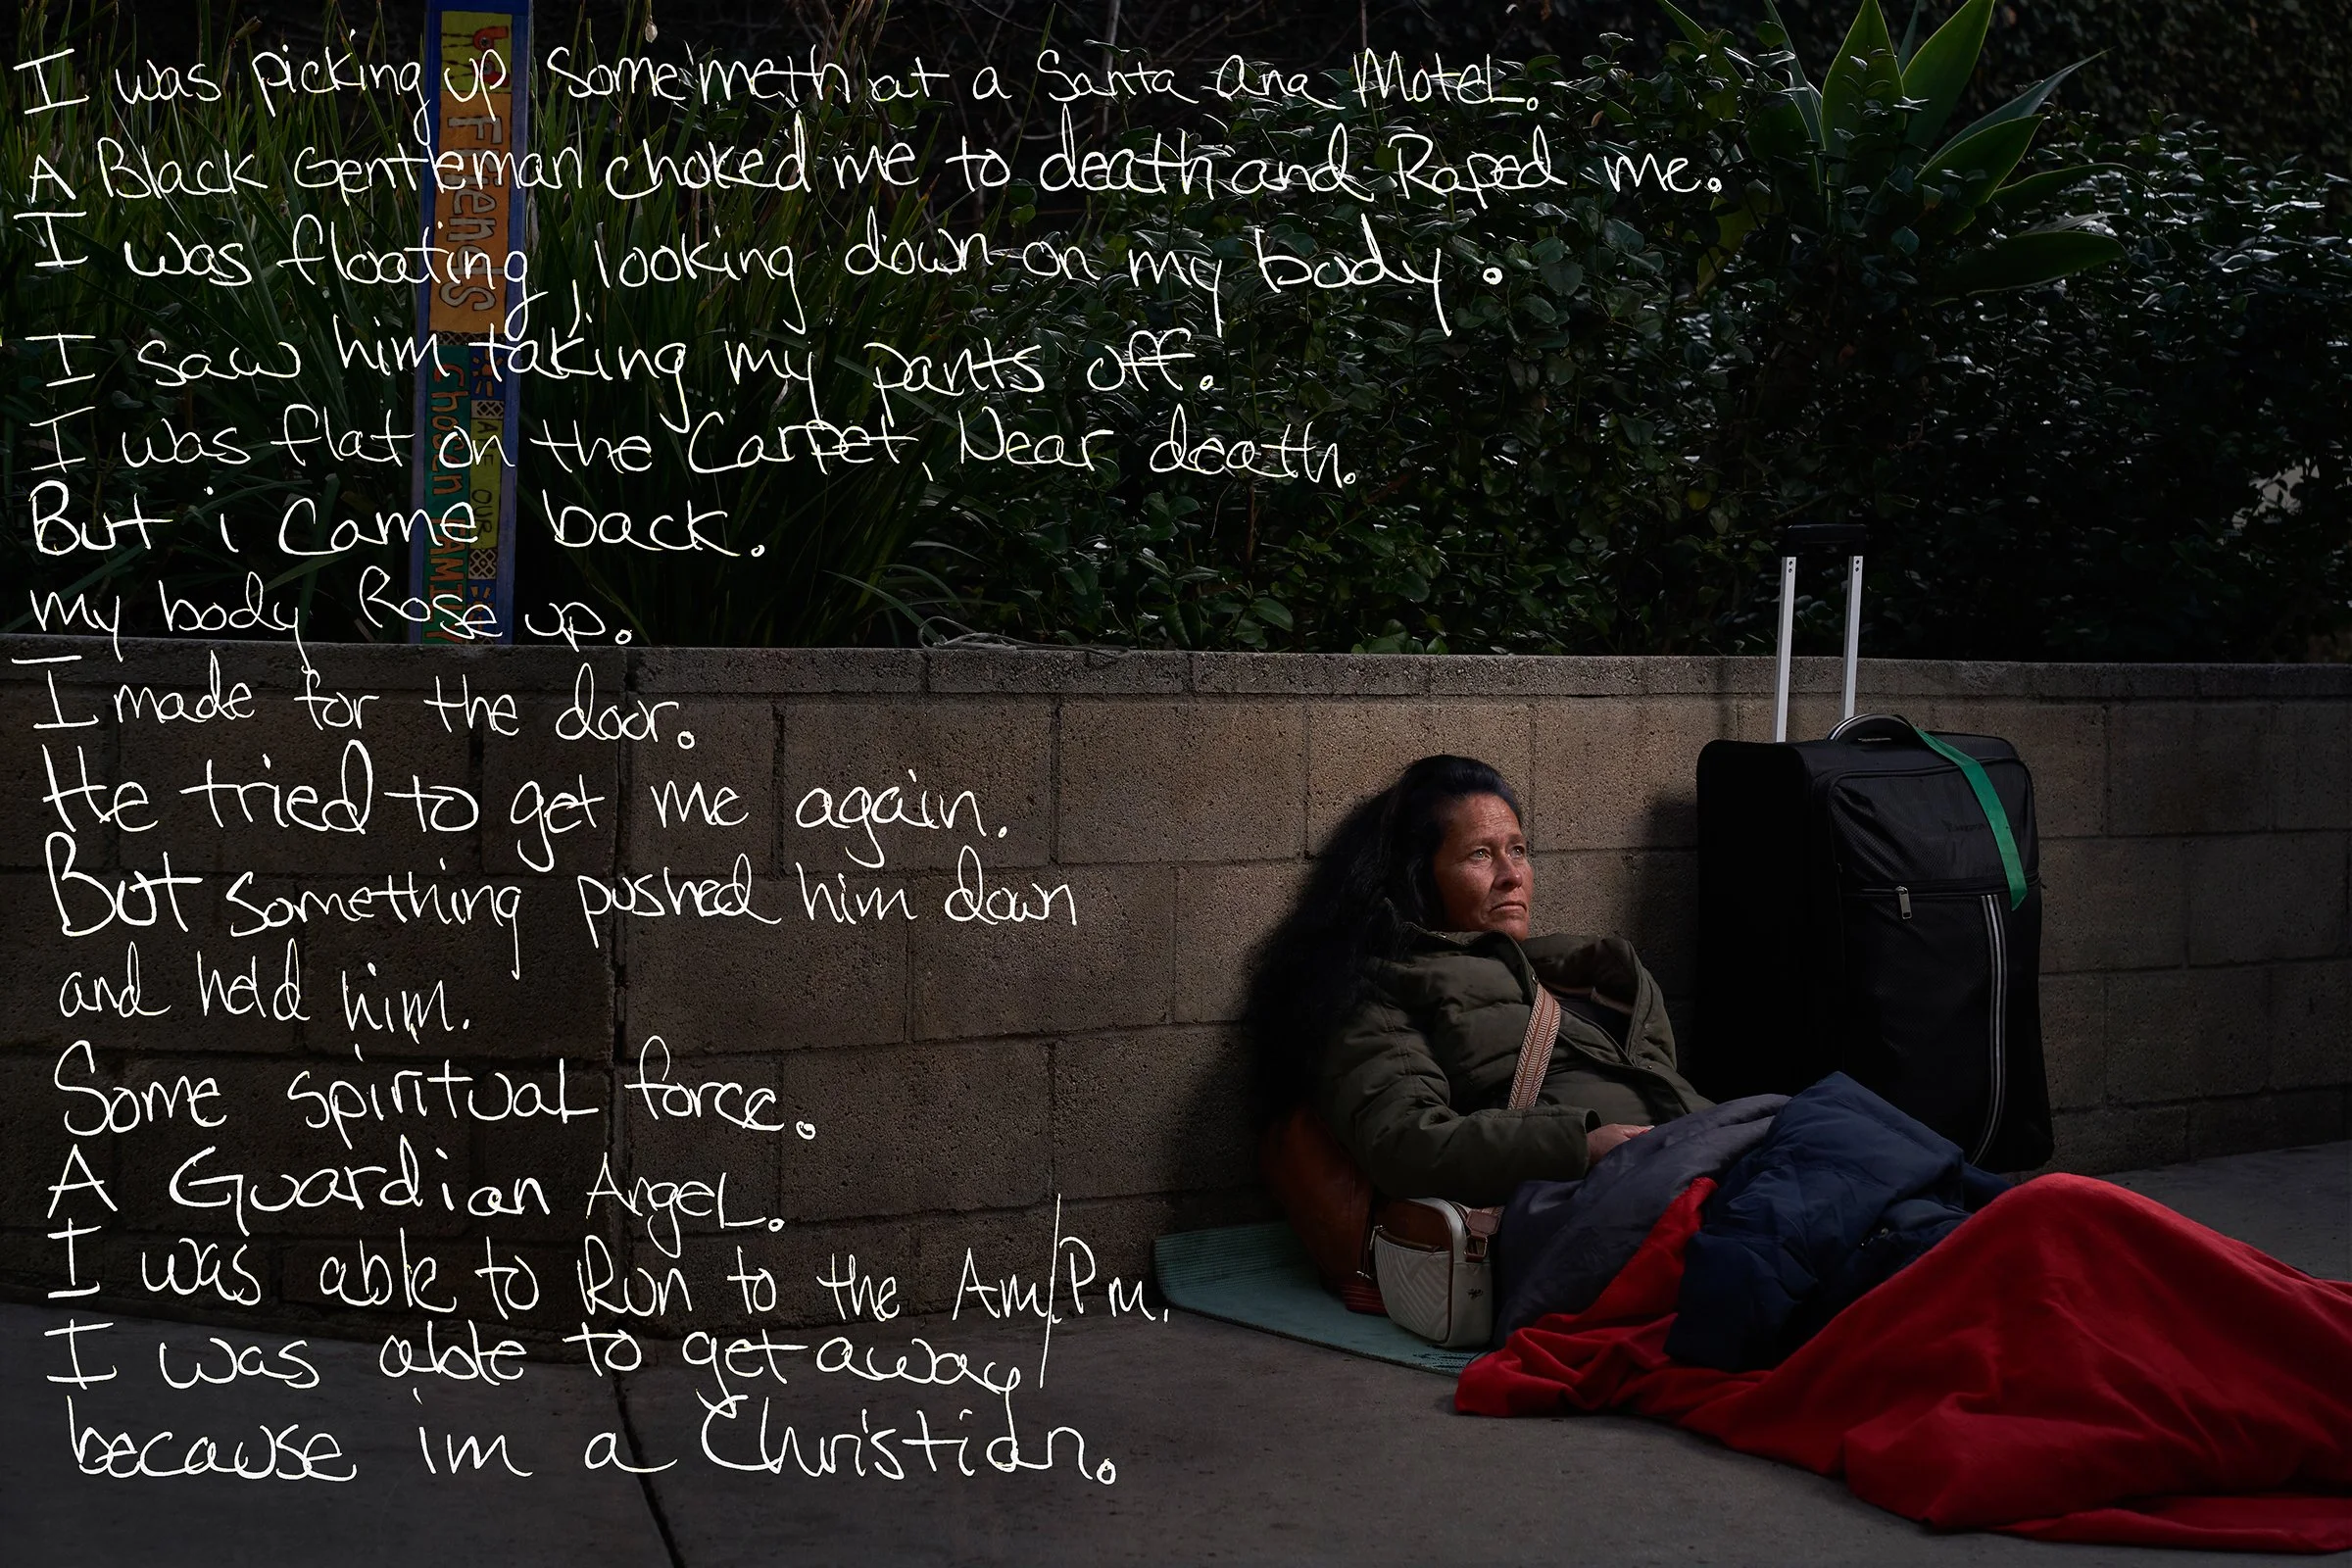 I was picking up some meth at a Santa Ana Motel.
A Black Gentleman choked me to death and Raped me.
I was floating, looking down on my body.
I saw him taking my pants off.
I was flat on the Carpet, Near death.
But i came back.
my body Rose up.
I made for the door.
He tried to get me again.
But something pushed him down
and held him.
Some spiritual force.
A Guardian Angel.
I was able to Run to the Am/Pm.
I was able to get away
because im a Christian.
Friends
Chosen FAMILY
OUR